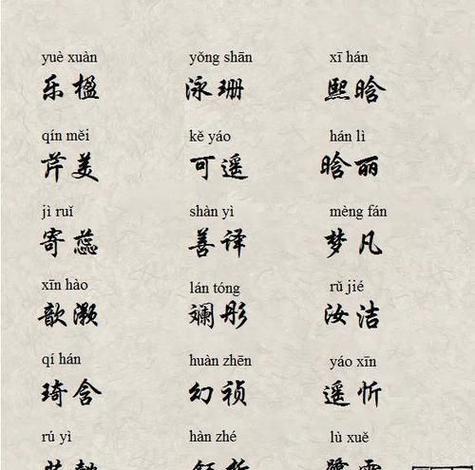 yuè xuàn yǒng shān xī hán
乐楹 泳珊 熙晗
qín měi kě yáo hán lì
芹美 可遥 晗丽
jì ruǐ shàn yì mèng fán
寄蕊 善译 梦凡
xīn hào lán tóng rǔ jié
歆灏 斓彤 汝洁
qí hán huàn zhēn yáo xīn
琦含 幻祯 遥忻
rú yì hàn zhé lù xuě